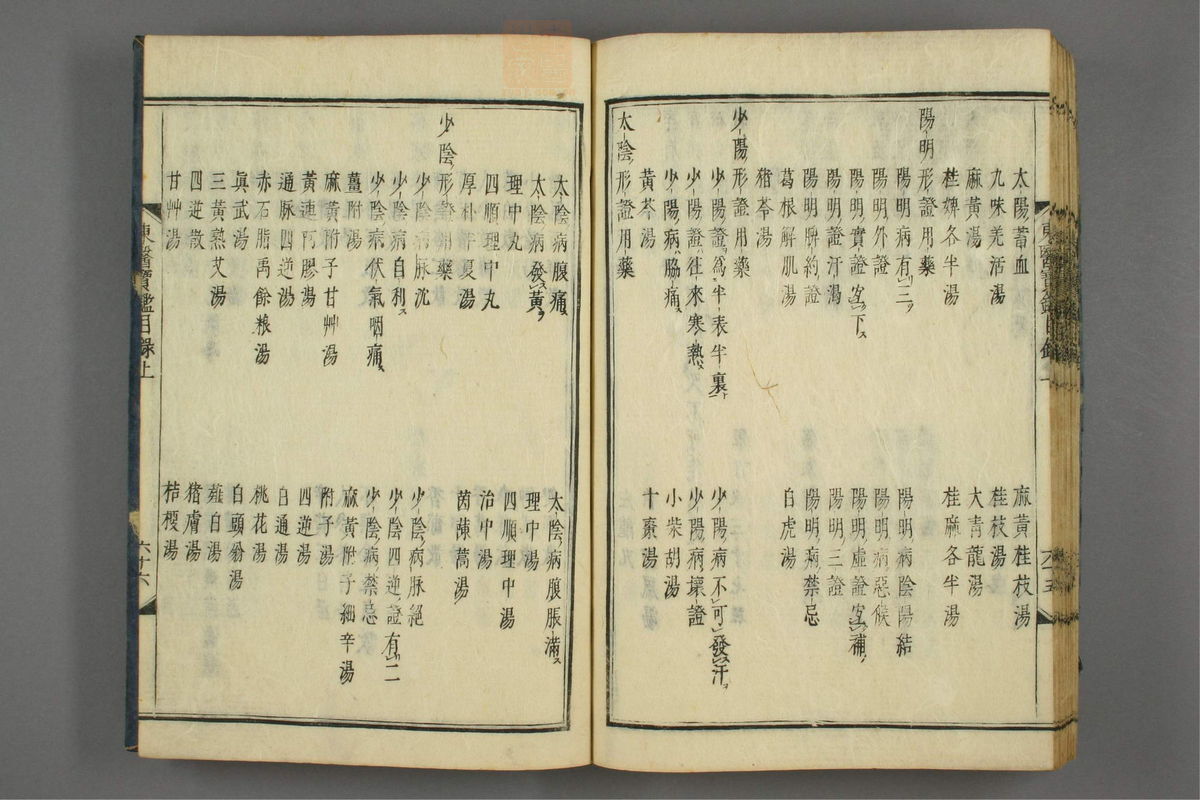 太陽蓄血 麻黃桂枝湯
九味羌活湯 桂枝湯
麻黃湯 大青龍湯
桂婢各半湯 桂麻各半湯
陽明ノ形證用藥
陽明病有三 陽明病陰陽結
陽明外證 陽明病惡候
陽明實證宜下 陽明虛證宜補
陽明證汗渴 陽明三證
陽明脾約證 陽明病禁忌
葛根解肌湯 白虎湯
猪苓湯
少陽ノ形證用藥
少陽證爲半表半裏 少陽病不可發汗
少陽證往來寒熱 少陽病壞證
少陽病脇痛 小柴胡湯
黃芩湯 十棗湯
太陰ノ形證用藥
太陰病腹痛 太陰病腹脹滿
太陰病發黃 理中湯
理中丸 四順理中湯
四順理中丸 治中湯
厚朴半夏湯 茵蔯蒿湯
少陰ノ形證用藥
少陰病脉沈 少陰病脉絕
少陰病自利 少陰四逆證有二
少陰病伏氣咽痛 少陰病禁忌
薑附湯 麻黃附子細辛湯
麻黃附子甘艸湯 附子湯
黃連阿膠湯 四逆湯
通脉四逆湯 白通湯
赤石脂禹餘粮湯 桃花湯
眞武湯 白頭翁湯
三黃熟艾湯 薤白湯
四逆散 猪膚湯
甘艸湯 桔梗湯
東醫寶鑑目錄上 六十六